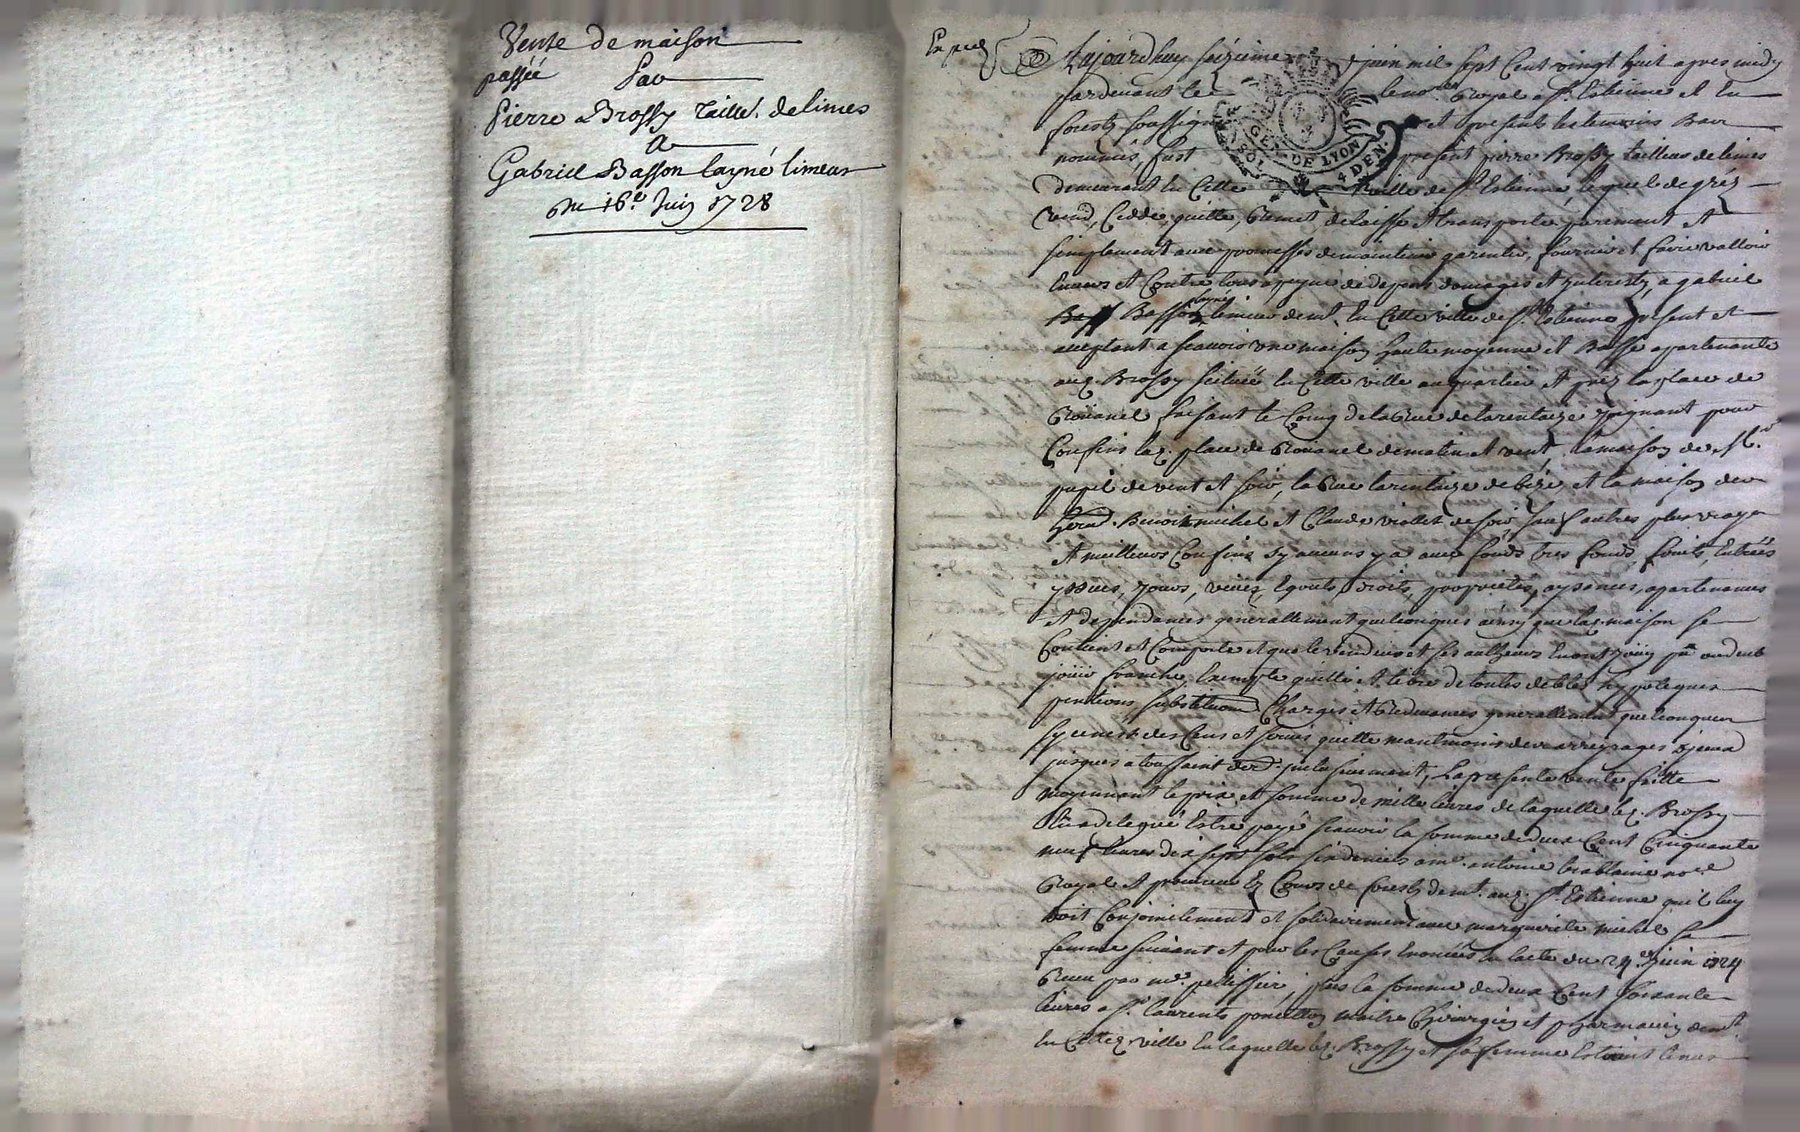 Vente de maison
passée Par
Pierre Brossy Taille.r de limes
A
Gabriel Basson layné limeur
du 16.e Juin 1728
Aujourdhuy seizieme juin mil sept Cent vingt huit apres midy
pardevant le no.re Royal a S.t Estienne et en
forestz soussigné et presents les temoins Bas
nommés, fust present pierre Brossy tailleur de limes
demeurant en Cette ville de S.t Estienne, lequel de gréz
vend, Cedde, quitte, Remet delaisse et transporte purement et
simplement avec promesses de maintenir garentir, fournir et faire valloir
envers et Contre tous a peyne de depens domages et Interestz, a gabriel
Basson layné limeur dem.t en Cette ville de S.t Estienne present et
acceptant a scavoir une maison haute moyenne et Basse apartenante
aud. Brossy scituée en Cette ville au quartier et prez la place de
Roüanel faisant le Coing de la Rue de tarentaize joignant pour
Confins lad. place de Roüanel de matin et vent la maison de
pupil de vent et soir, la Rue tarentaize de bize, et la maison de
Benoit michel et Claude viallet de soir sauf autres plus vrays
et meilleurs Confins sy aucuns y a avec fonds tres fonds, fruits, Entrées
yssues, jours, veües, Egouts, droits, proprietes, aysances, apartenances
et dependances generallement quelconques ainsy que lad. maison se
Contient et Comporte et que le vendeur et ses autheurs En ont jouy ou deub
jouir franche, Exempte quitte et libre de toutes debtes hypoteques
pentions substitutions Charges et Redevances generallement quelconques
sy ce n'est des Cens et servis quitte neantmoins des arreyrages d'jceux
jusques a toussaint der.e jnclusivement, La presente vente faitte
moyennant le prix et somme de mille livres de laquelle led. Brossy
a delegué Estre payé scavoir la somme de deux Cent Cinquante
neuf livres dix sept sols six deniers a m.e antoine trablaine no.re
Royal et procureur Ez Cours de forestz dem.t aud. S.t Estienne qu'il luy
doit Conjointement et solidairement avec marguerite michel sa
femme suivant et pour les Causes Enoncées En l'acte du 24.e juin 1724
Receu par m.e pelissier, plus la somme de deux Cent soixante
livres a S.r laurent ponchon maitre Chirurgien et pharmacien dem.t
en Cetted. ville En laquelle led. Brossy et sa femme Estoient tenus
GEN. DE LYON
4 DEN.